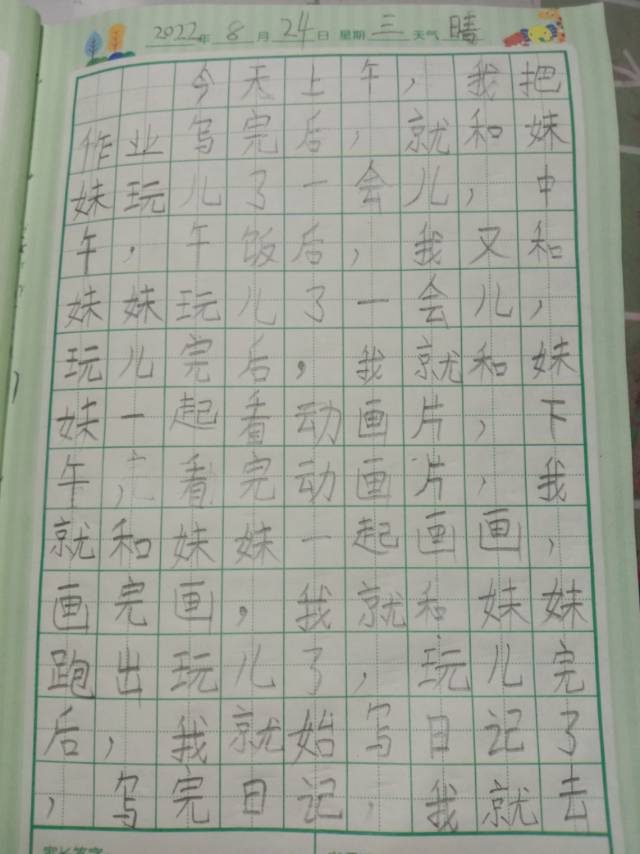 2022年 8月 24日 星期 三 天气 晴
今天上午，我把
作业写完后，就和妹
妹玩儿了一会儿，中
午，午饭后，我又和
妹妹玩儿了一会儿，
玩儿完后，我就和妹
妹一起看动画片，下
午，看完动画片，我
就和妹妹一起画画，
画完画，我就和妹妹
跑出玩儿了，玩儿完
后，我就始写日记了
，写完日记，我就去